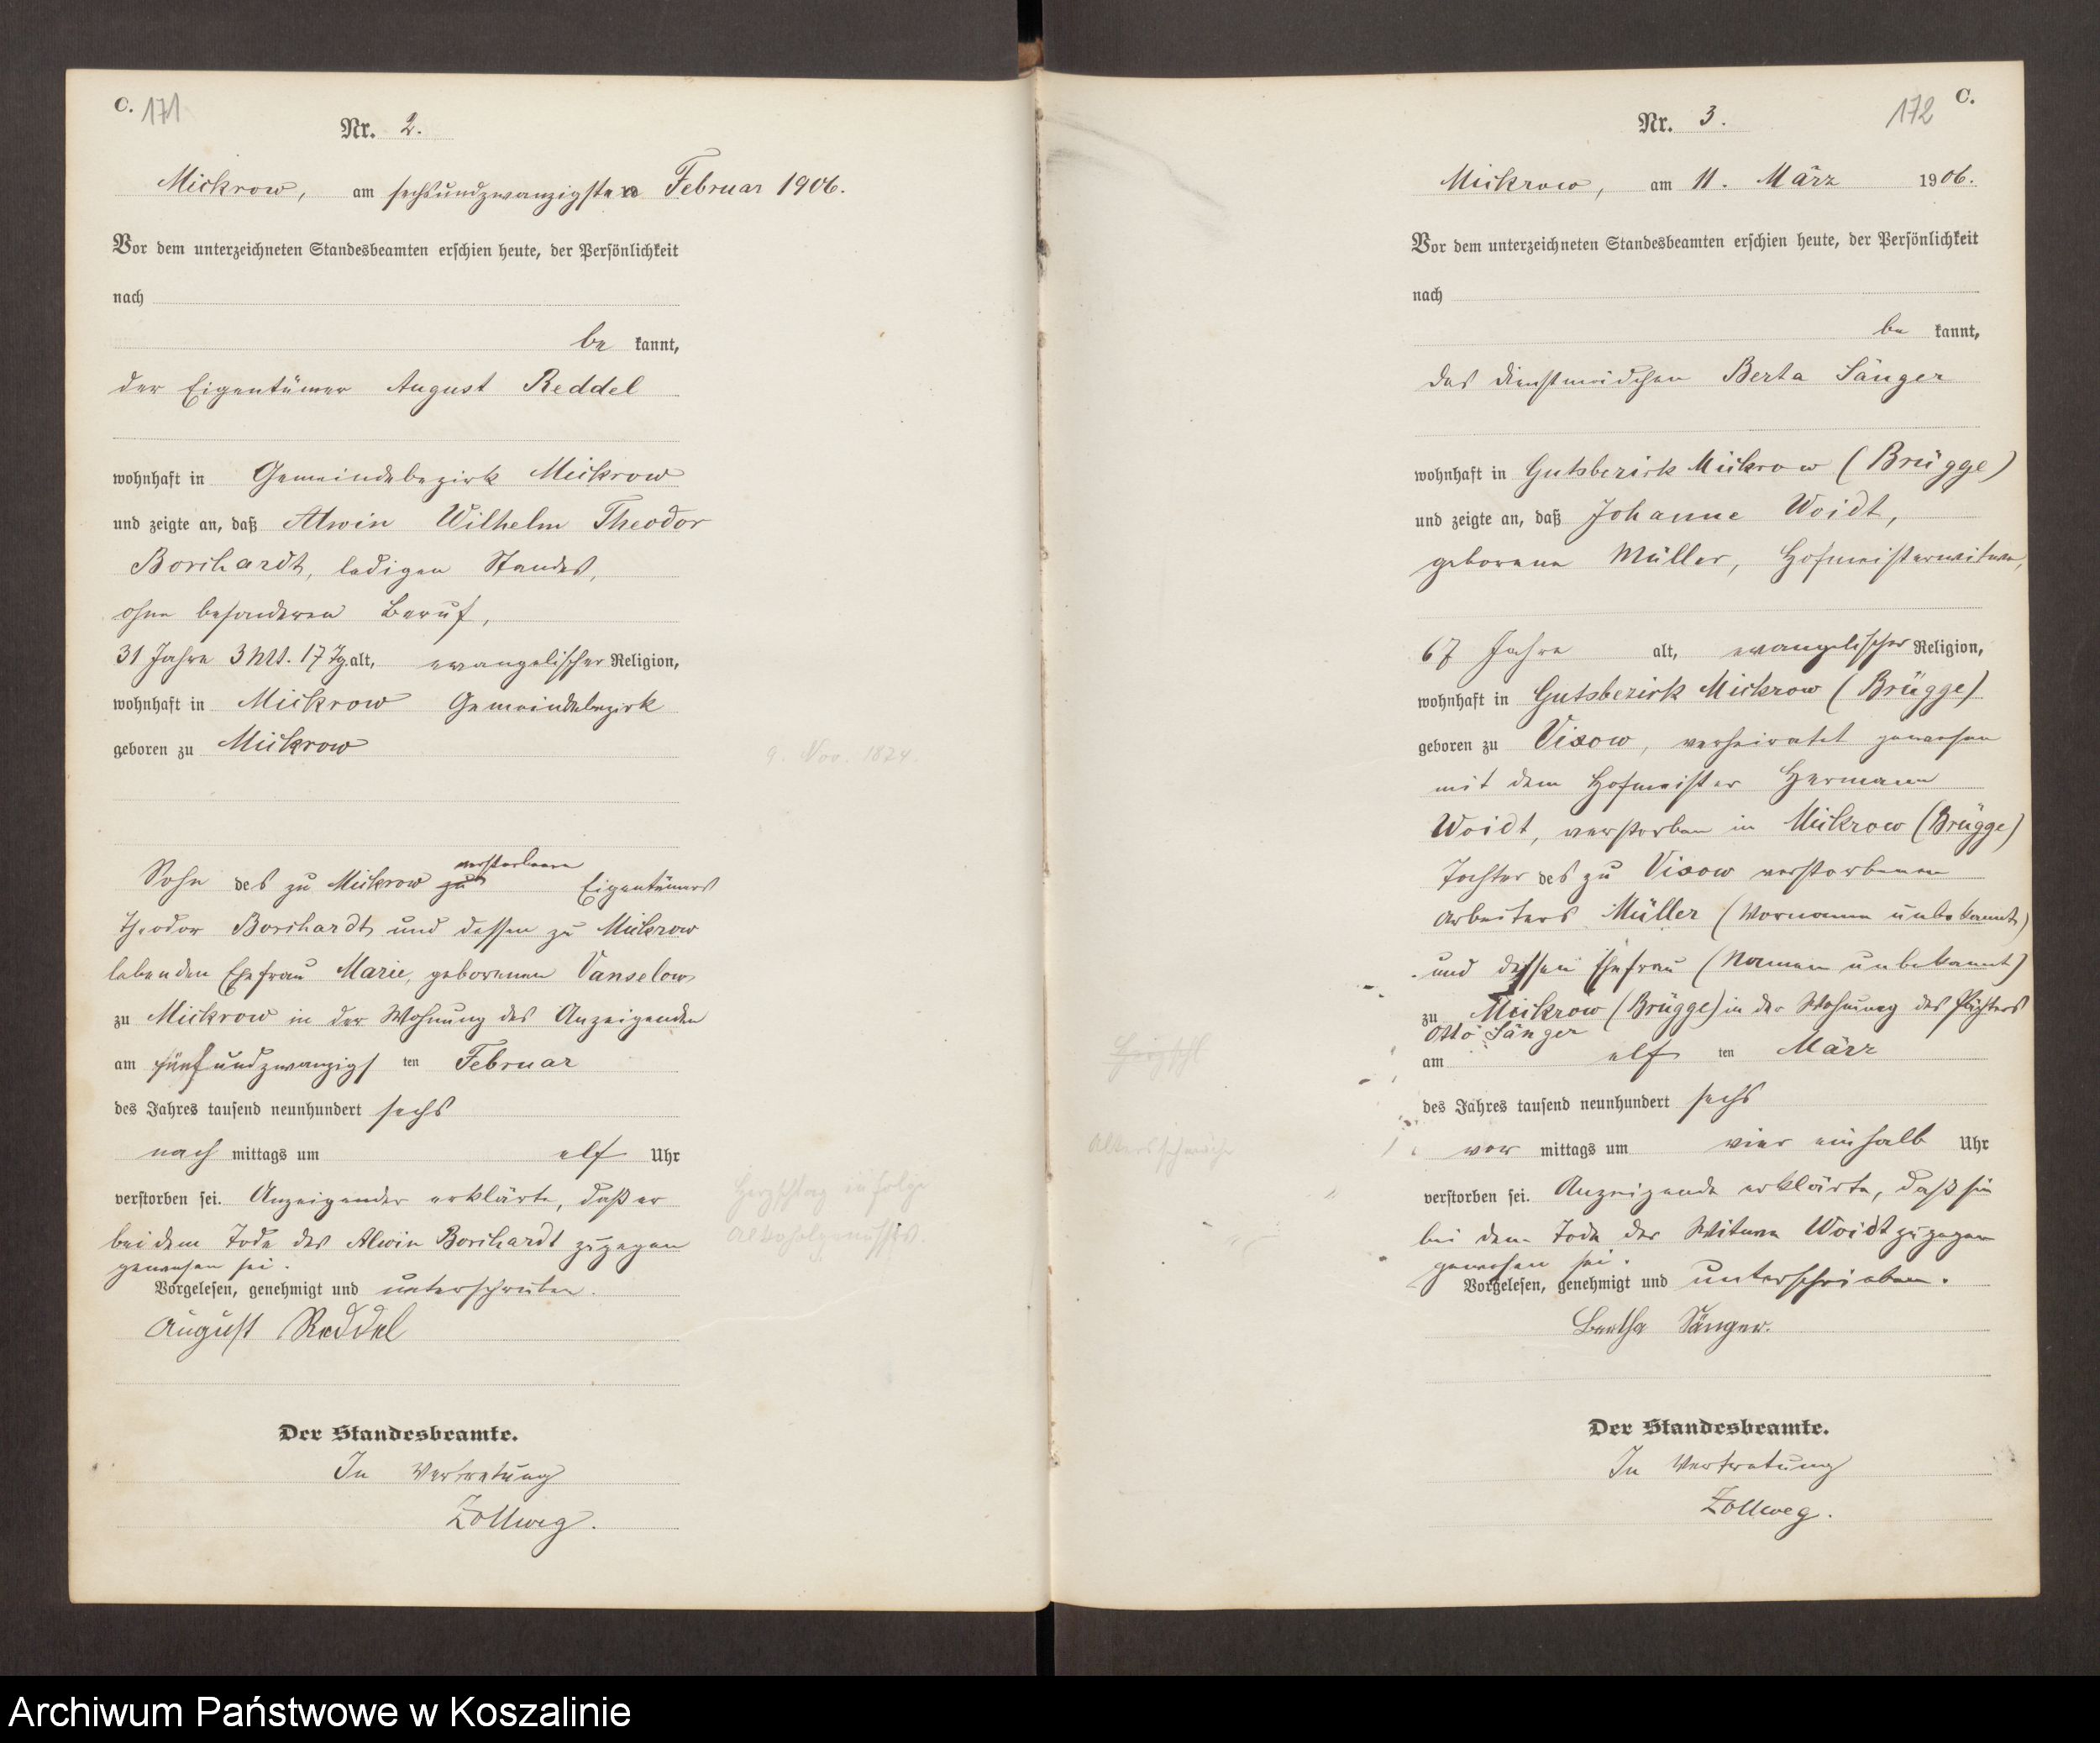 C. 171
Nr. 2.
Mickrow, am sechsundzwanzigsten Februar 1906.
Vor dem unterzeichneten Standesbeamten erschien heute, der Persönlichkeit
nach
be kannt,
der Eigentümer August Reddel
wohnhaft in Gemeindebezirk Mickrow
und zeigte an, daß Alwin Wilhelm Theodor
Borchardt, ledigen Standes,
ohne besonderen Beruf,
31 Jahre 3 Mt. 17 Tg. alt, evangelischer Religion,
wohnhaft in Mickrow Gemeindebezirk
geboren zu Mickrow
9. Nov. 1874.
verstorbenen
Sohn des zu Mickrow zu Eigentümers
Theodor Borchardt und dessen zu Mickrow
lebenden Ehefrau Marie, geborenen Vanselow
zu Mickrow in der Wohnung des Anzeigenden
am fünfundzwanzigs ten Februar
des Jahres tausend neunhundert sechs
nach mittags um elf Uhr
verstorben sei. Anzeigender erklärte, daß er
bei dem Tode des Alwin Borchardt zugegen
gewesen sei.
Herzschlag in folge
Alkoholgenusses.
Vorgelesen, genehmigt und unterschrieben.
August Reddel
Der Standesbeamte.
In Vertretung
Zollweg.
172 C.
Nr. 3.
Mickrow, am 11. März 1906.
Vor dem unterzeichneten Standesbeamten erschien heute, der Persönlichkeit
nach
be kannt,
das Dienstmädchen Berta Sänger
wohnhaft in Gutsbezirk Mickrow (Brügge)
und zeigte an, daß Johanne Woidt,
geborene Müller, Hofmeisterwitwe,
67 Jahre alt, evangelischer Religion,
wohnhaft in Gutsbezirk Mickrow (Brügge)
geboren zu Vixow, verheiratet gewesen
mit dem Hofmeister Hermann
Woidt, verstorben in Mickrow (Brügge)
Tochter des zu Vixow verstorbenen
Arbeiters Müller (Vorname unbekannt)
und dessen Ehefrau (Namen unbekannt)
zu Mickrow (Brügge) in der Wohnung des Pächters
Otto Sänger
am elf ten März
des Jahres tausend neunhundert sechs
vor mittags um vier einhalb Uhr
Altersschwäche
verstorben sei. Anzeigende erklärte, daß sie
bei dem Tode der Witwe Woidt zugegen
gewesen sei.
Vorgelesen, genehmigt und unterschrieben.
Bertha Sänger.
Der Standesbeamte.
In Vertretung
Zollweg.
Archiwum Państwowe w Koszalinie